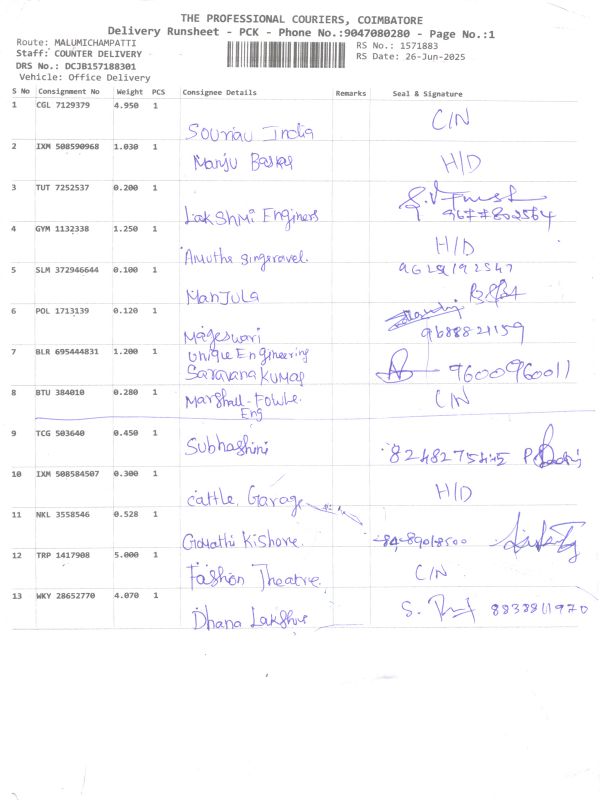 THE PROFESSIONAL COURIERS, COIMBATORE
Delivery Runsheet - PCK - Phone No.:9047080280 - Page No.:1
Route: MALUMICHAMPATTI
RS No.: 1571883
Staff: COUNTER DELIVERY
RS Date: 26-Jun-2025
DRS No.: DCJB157188301
Vehicle: Office Delivery
S No Consignment No Weight PCS Consignee Details Remarks Seal & Signature
1 CGL 7129379 4.950 1 Souriau India C/N
2 IXM 508590968 1.030 1 Manju Baskar H/D
3 TUT 7252537 0.200 1 Lakshmi Engineers 9677802564
4 GYM 1132338 1.250 1 Amutha singaravel. H/D
5 SLM 372946644 0.100 1 ManJula
6 POL 1713139 0.120 1 Mageswari 9688821159
7 BLR 695444831 1.200 1 Unique Engineering
Saravana Kumar 9600960011
8 BTU 384010 0.280 1 Marshall-Fowler C/N
Eng
9 TCG 503640 0.450 1 Subhashini
10 IXM 508584507 0.300 1 Cattle Garage H/D
11 NKL 3558546 0.528 1 Gayathi Kishore
12 TRP 1417908 5.000 1 Fashion Theatre C/N
13 WKY 28652770 4.070 1 Dhana Lakshmi 8838811970